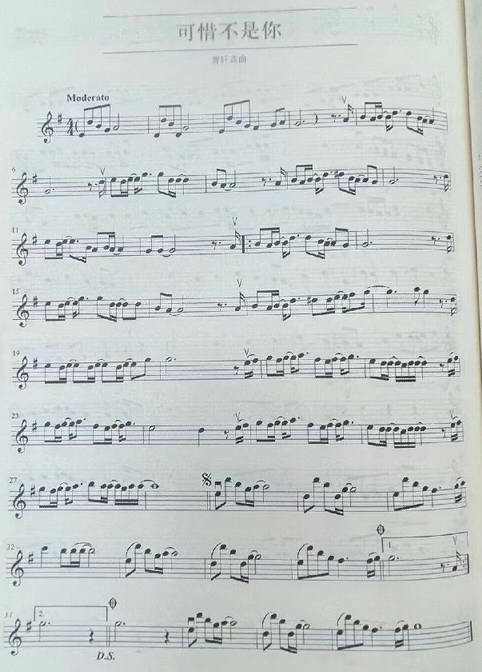 可惜不是你
曹轩宾曲
Moderato
4
4
11
15
19
23
27
32
1.
2.
D.S.